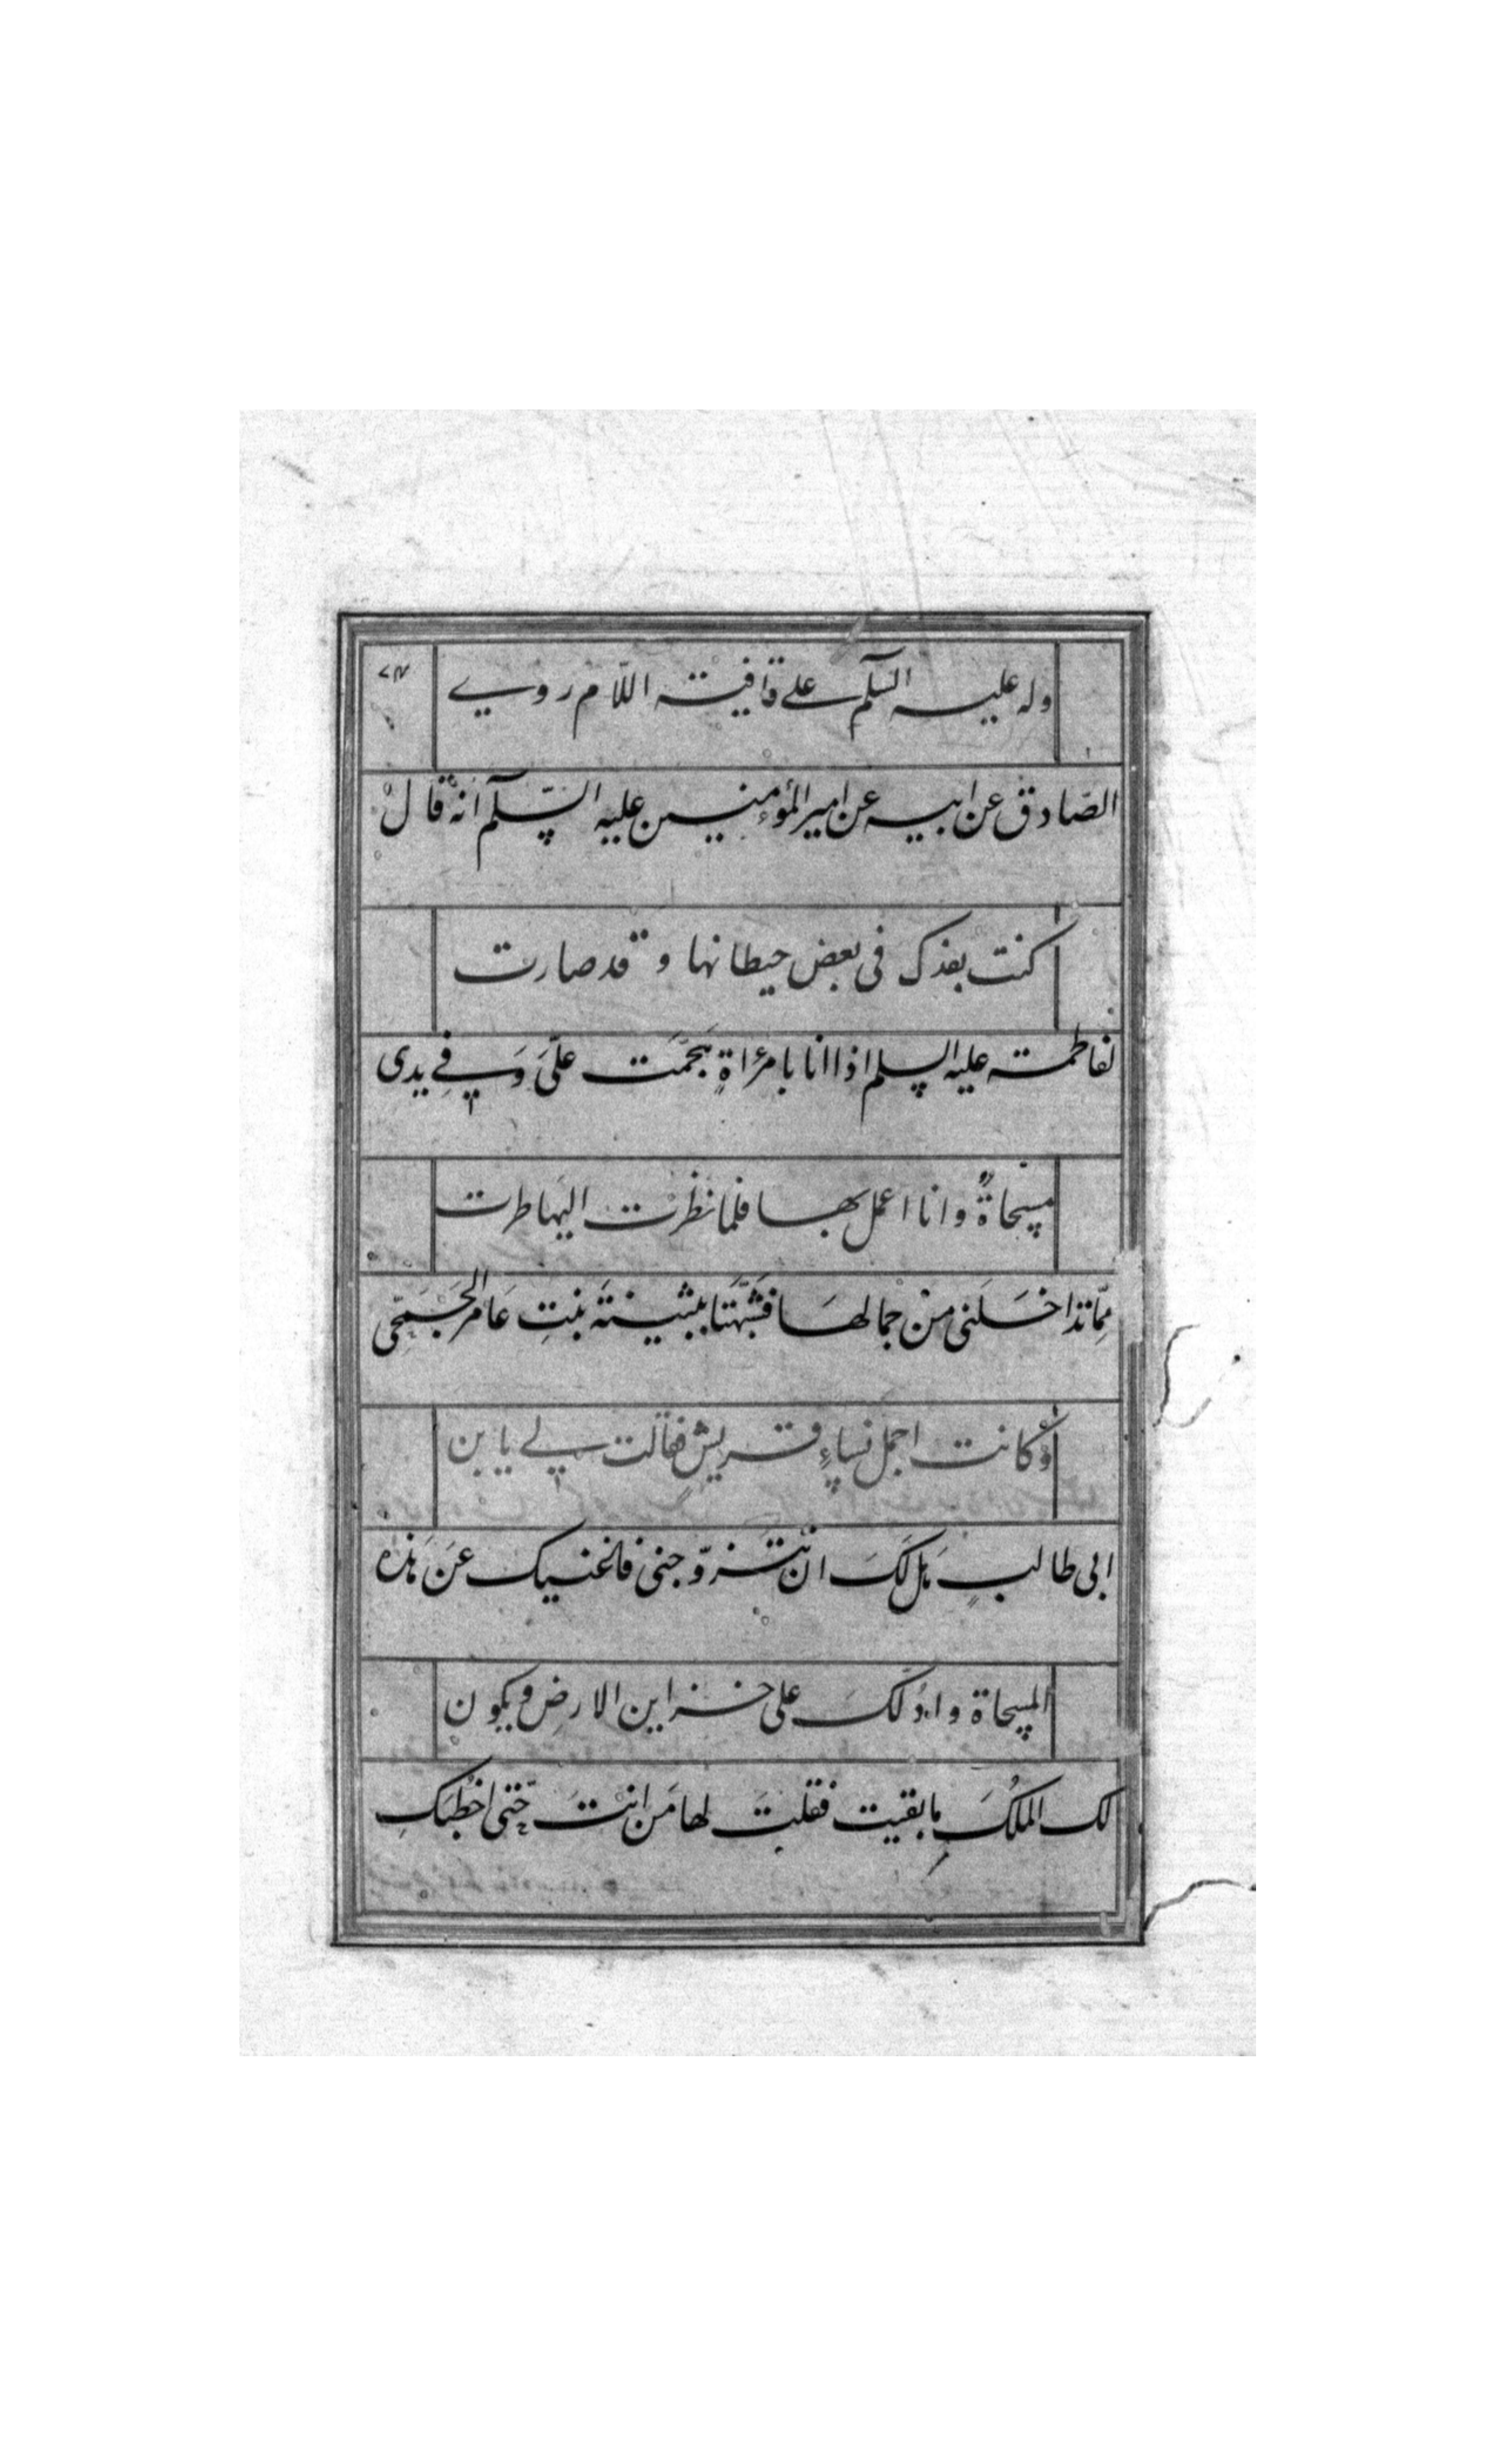 وله عليه السلم على قافية اللّام روى
الصّادق عن ابيه عن امير المؤمنين عليه السّلم انّه قال
كنت بفدك فى بعض حيطانها و قد صارت
لفاطمة عليه السلم اذا انا بامرأةٍ تجمّت علىَّ وَ فى يدى
مسحاةٌ و انا اعمل بها فلما نظرت اليها طرت
ممّا تداخلنى من جمالها فشبّهتها ببثينة بنتِ عامر الجمحى
و كانت اجمل نساءِ قريشٍ فقالت لى يا بن
ابى طالبٍ هل لكَ ان تتزوّجنى فاغنيك عن هذه
المسحاة و ادلّكَ على خزاين الارض و يكون
لك الملكُ ما بقيت فقلت لها مَن انت حتّى اخطبكِ